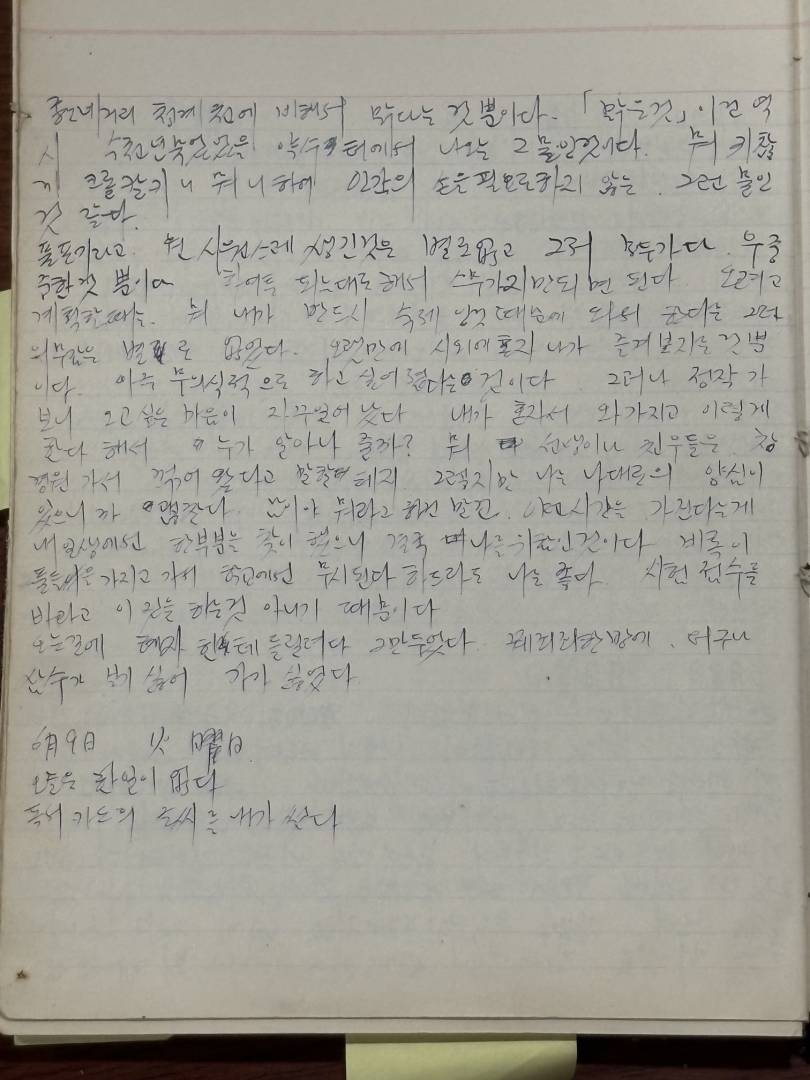 종로네거리 청계천에 비해서 맑다는 것 뿐이다. 「맑은것」 이건 역
시 수천년 묵었을 약수터에서 나오는 그 물인것이다. 뭐 귀찮
게 크롤칼키니 뭐니 하여 인간의 손을 필요로하지 않는, 그런 물인
것 같다.
풀포기라고 뭔 시원스레 생긴것은 별로 없고 그저 모두가 다. 우중
중한것 뿐이다 하여튼 되는대로 해서 스무가지만되면 된다. 오려고
계획할때는, 뭐 내가 반드시 숙제 때문에 와서 한다는 그런
의무감은 별로 없었다. 오랫만에 시외에 혼자 나가 즐겨보자는 것 뿐
이다. 아주 무의식적으로 하고 싶어졌다는 것이다. 그러나 정작 가
보니 오고 싶은 마음이 자꾸 없어 났다 내가 혼자서 와가지고 이렇게
한다 해서 누가 알아나 줄까? 뭐 선생이나 친우들은, 창
경원 가서 꺾어 왔다고 말할테지 그렇지만 나는 나대로의 양심이
있으니까 괜찮다. 남이야 뭐라고 하건 말건, 야외시간을 가진다는게
내 일생에선 한부분을 찾이 했으니 결국 나를 위함인 것이다 비록 이
풀들을 가지고 가서 학교에선 무시된다 하드라도 나는 좋다. 시험 점수를
바라고 이 짓을 하는것 아니기 때문이다
오는길에 혜자 한테 들릴려다 그만두었다. 꾀죄죄한 방에, 더구나
삼수가 보기 싫어 가기 싫었다.
6月 9日 火 曜日
오늘은 한일이 없다
독서 카드의 글씨를 내가 쓴다